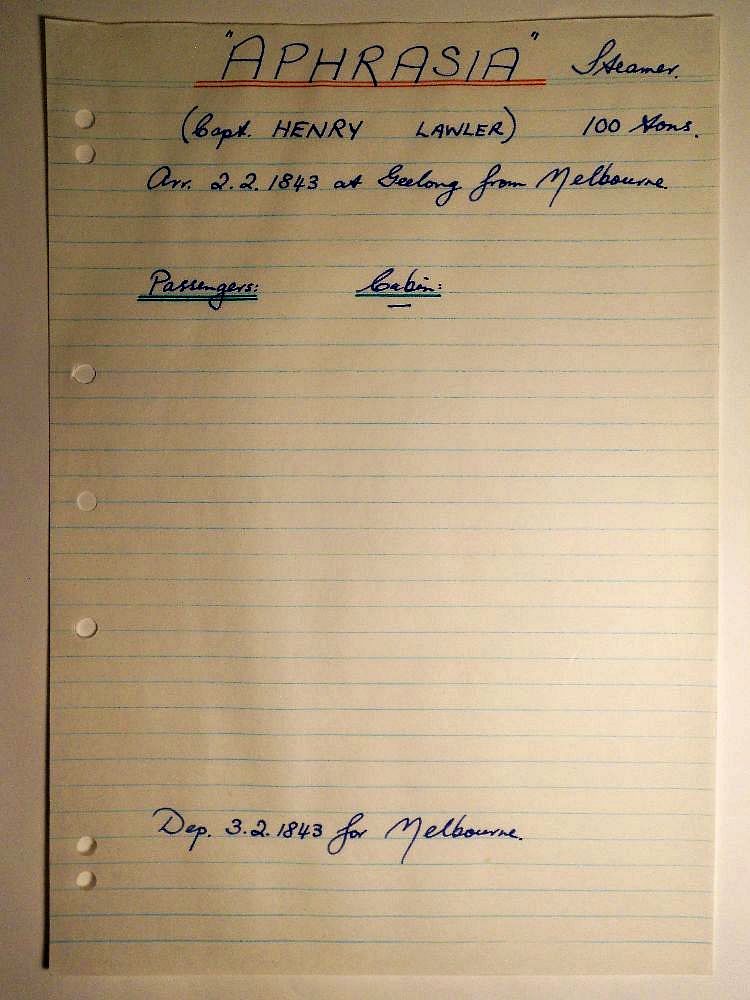 "APHRASIA" Steamer.
(Capt. HENRY LAWLER) 100 tons.
Arr. 2.2.1843 at Geelong from Melbourne.
Passengers: Cabin:
—
Dep. 3.2.1843 for Melbourne.